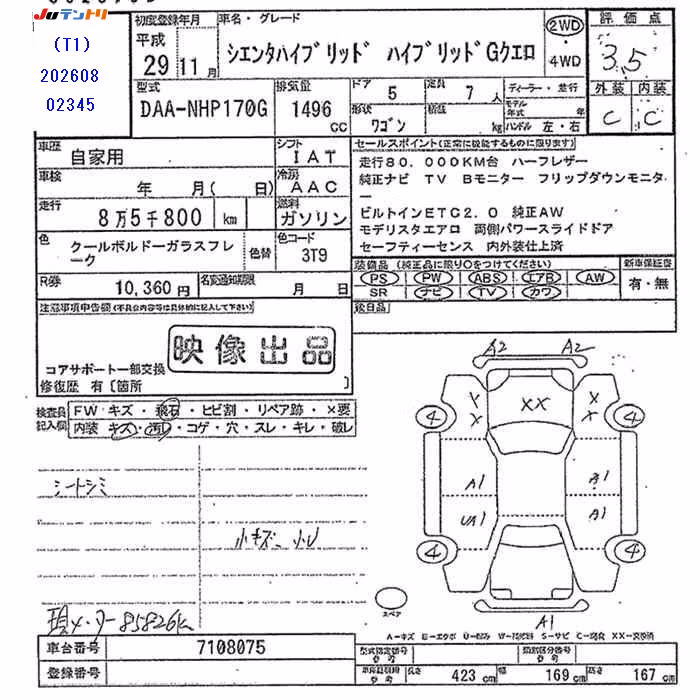 Juテントリ
(T1)
202608
02345
初度登録年月
平成
29 11月
車名・グレード
シエンタハイブリッド ハイブリッドGクエロ
2WD
・
4WD
評価点
3.5
外装 内装
C C
型式
DAA-NHP170G
排気量
1496
cc
ドア
5
定員
7人
形状
ワゴン
積載
kg
ディーラー・並行
モデル年式 年
ハンドル 左・右
車歴
自家用
シフト
IAT
車検
年 月( 日)
冷房
AAC
走行
8万5千800 km
燃料
ガソリン
色
クールボルドーガラスフレーク
色替
色コード
3T9
R券
10,360円
名変通知期限
月 日
セールスポイント(正常に機能するものに限ります)
走行80,000KM台 ハーフレザー
純正ナビ TV Bモニター フリップダウンモニタ
ー
ビルトインETC2.0 純正AW
モデリスタエアロ 両側パワースライドドア
セーフティーセンス 内外装仕上済
装備品(純正品に限り○をつけてください)
PS PW ABS エアB AW
SR ナビ TV カワ
新車保証書
有・無
注意事項申告欄(不具合内容等は具体的に記入して下さい)
映像出品
コアサポート一部交換
修復歴 有〔箇所 〕
検査員記入欄
FW キズ・飛石・ヒビ割・リペア跡・×要
内装 キズ・汚れ・コゲ・穴・スレ・キレ・破レ
シートシミ
小キズ、小U
現メーター85826km
A2 A2
X X
X X
XX
4 4
A1 A1
UA1 A1
4 4
スペア
A1
車台番号 7108075
登録番号
型式指定番号 参考
類別区分番号 参考
長さ 423 cm 幅 169 cm 高さ 167 cm